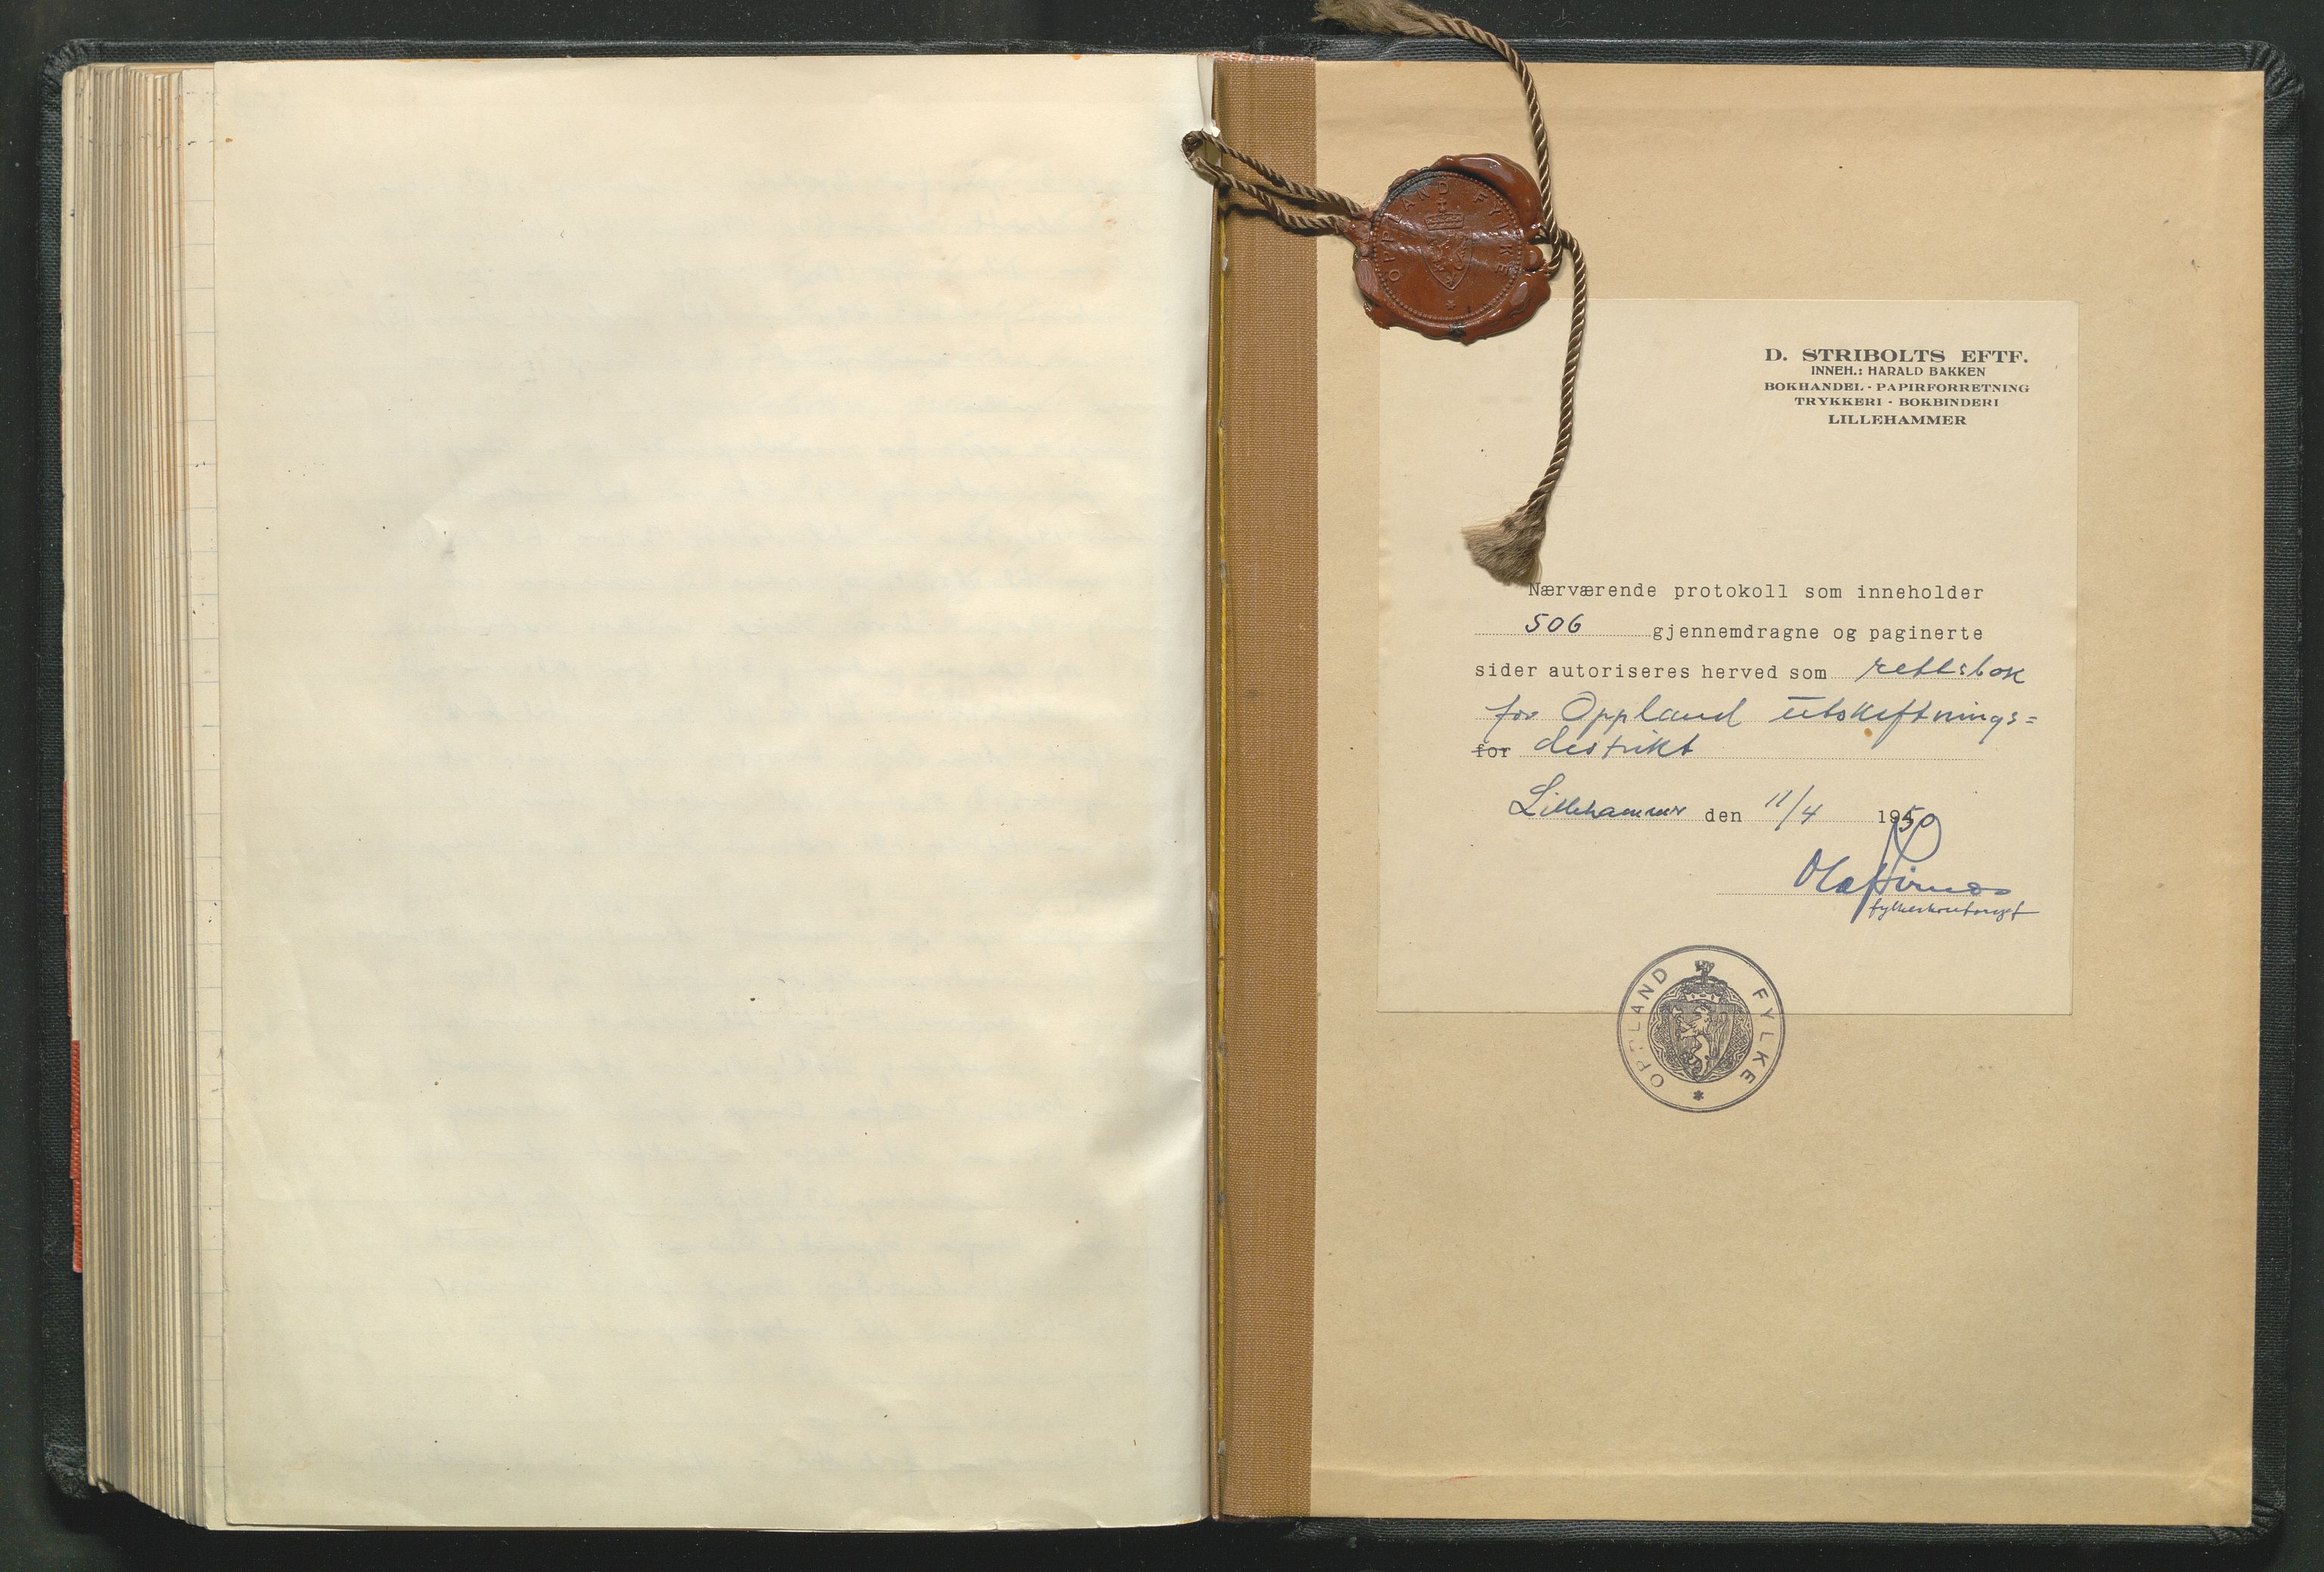 OPPLAND FYLKE
D. STRIBOLTS EFTF.
INNEH.: HARALD BAKKEN
BOKHANDEL · PAPIRFORRETNING
TRYKKERI · BOKBINDERI
LILLEHAMMER
Nærværende protokoll som inneholder
506 gjennemdragne og paginerte
sider autoriseres herved som rettsbok
for Oppland utskiftnings=
for distrikt
Lillehammer den 11/4 1950
fylkeskontorsjef
OPPLAND FYLKE